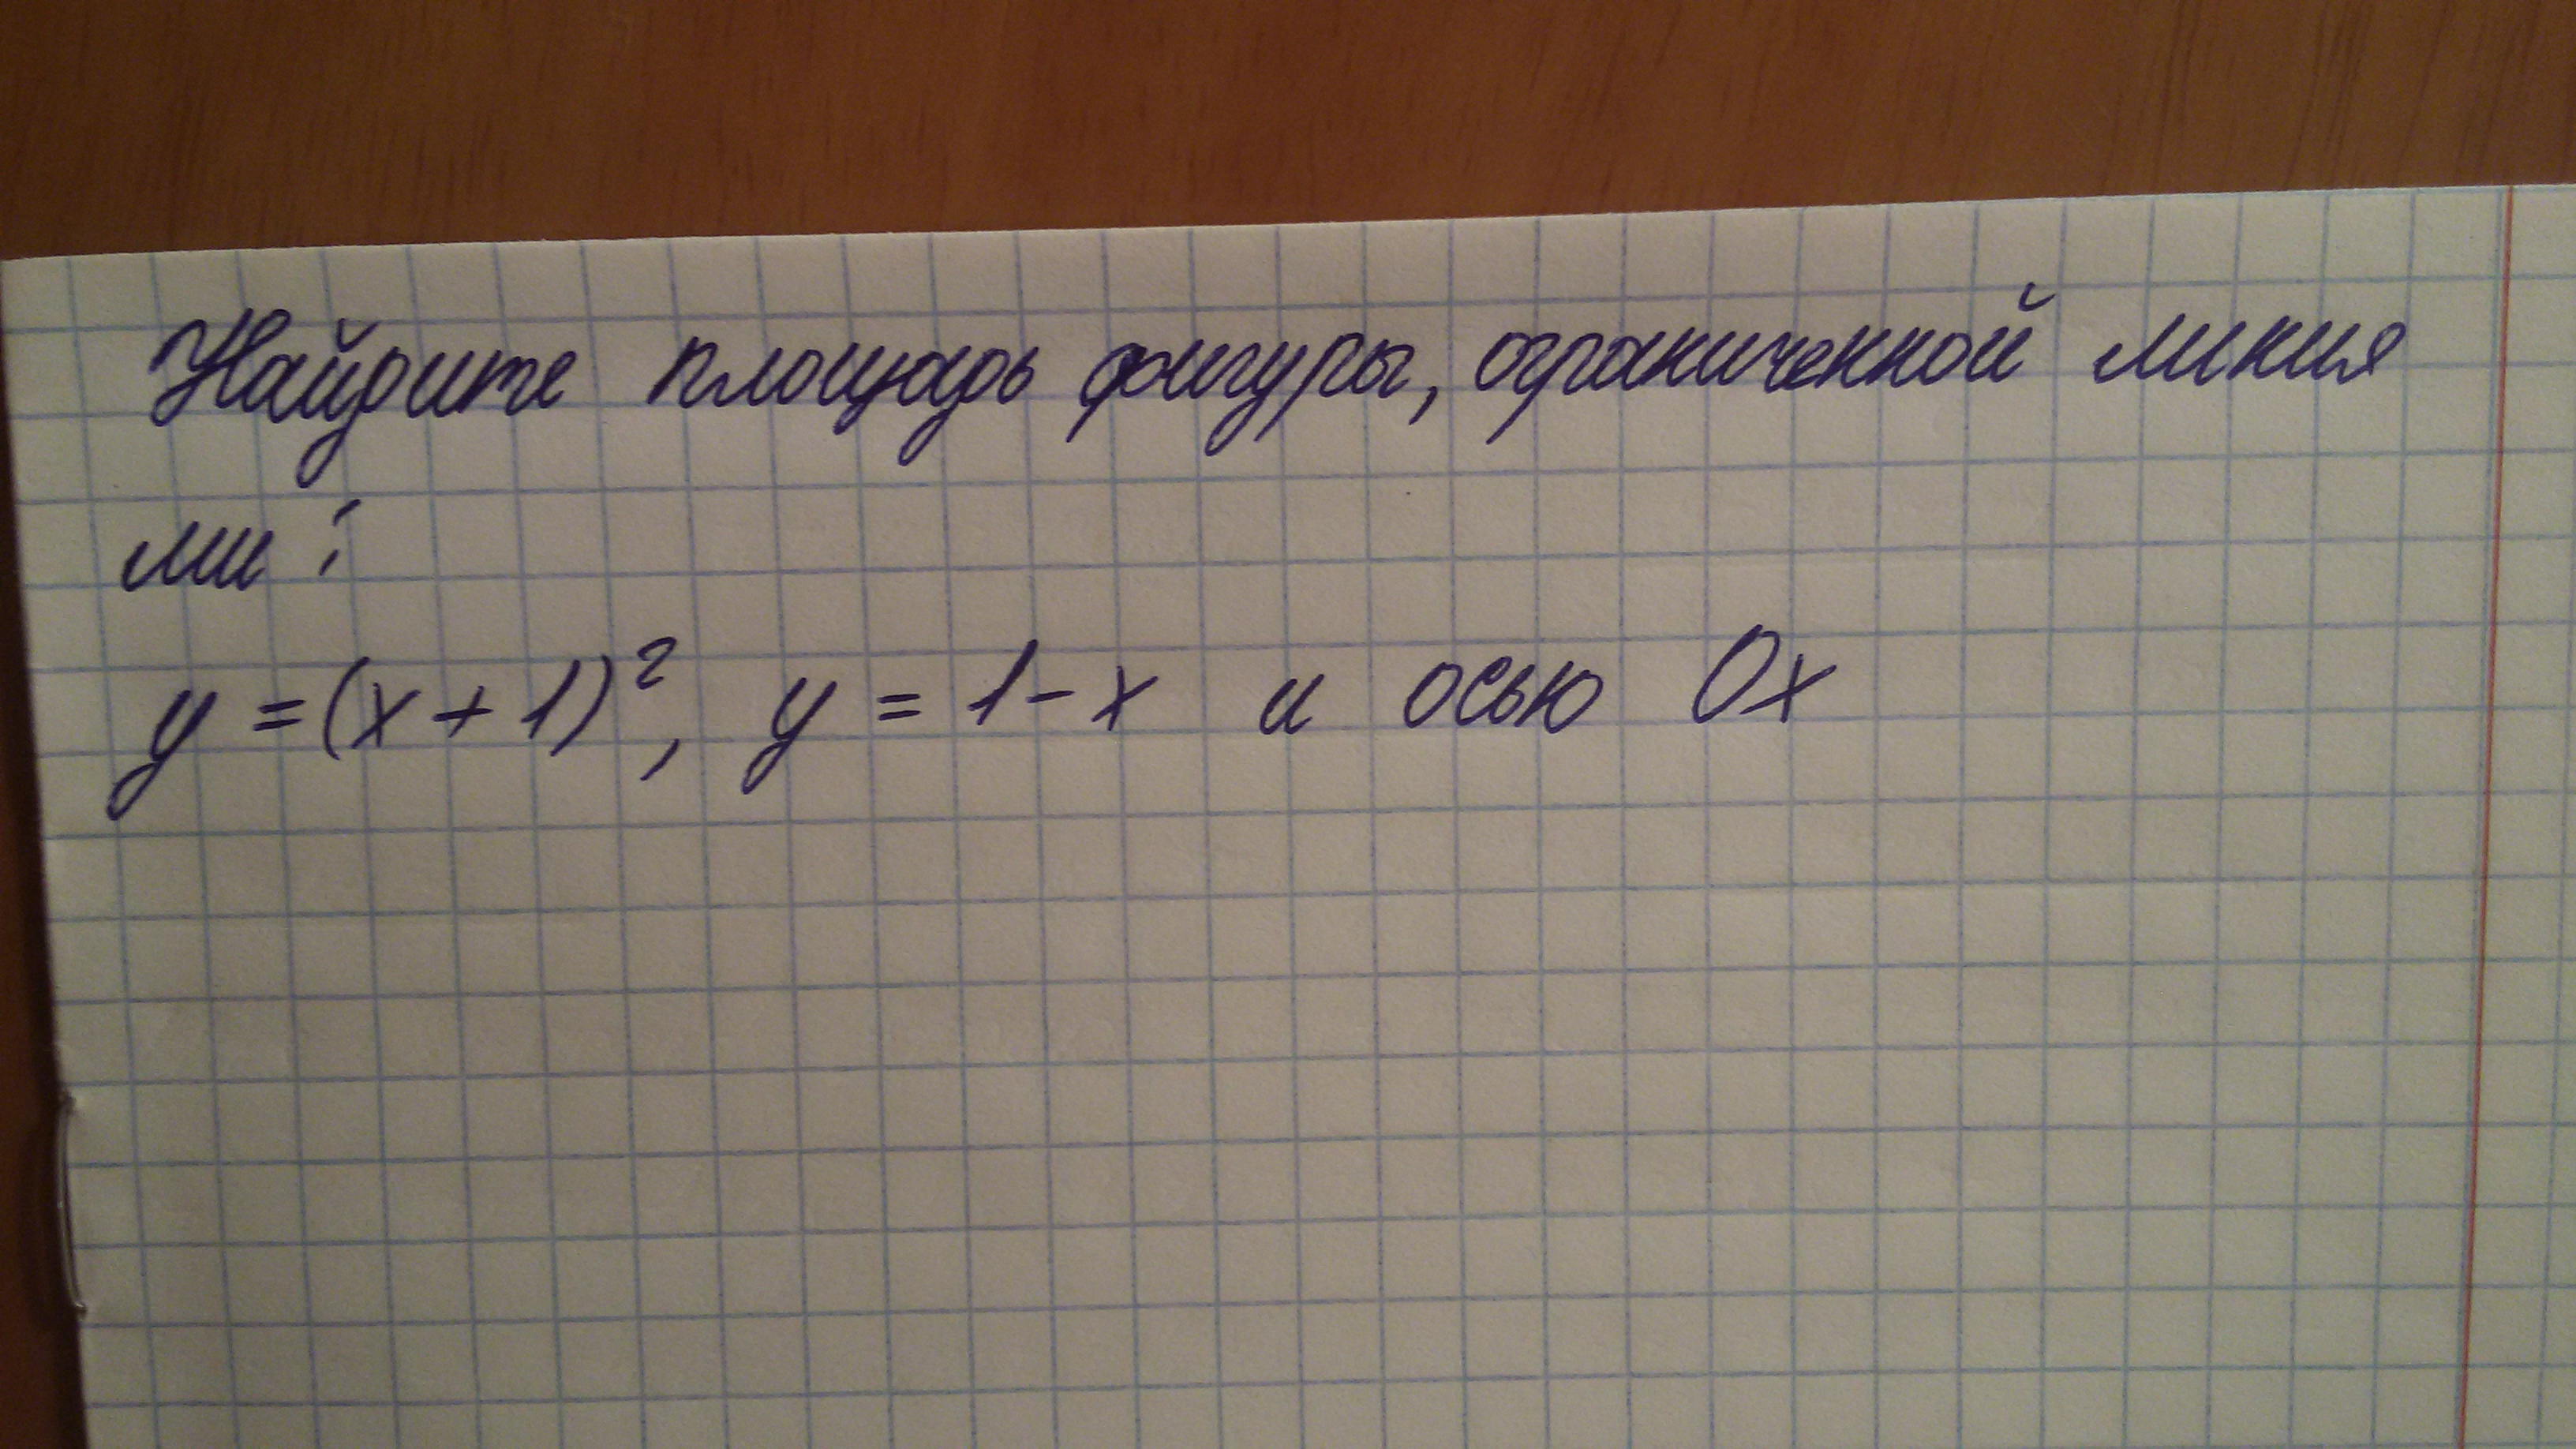 Найдите площадь фигуры, ограниченной линия
ми:
y = (x + 1)², y = 1 - x и осью Ox